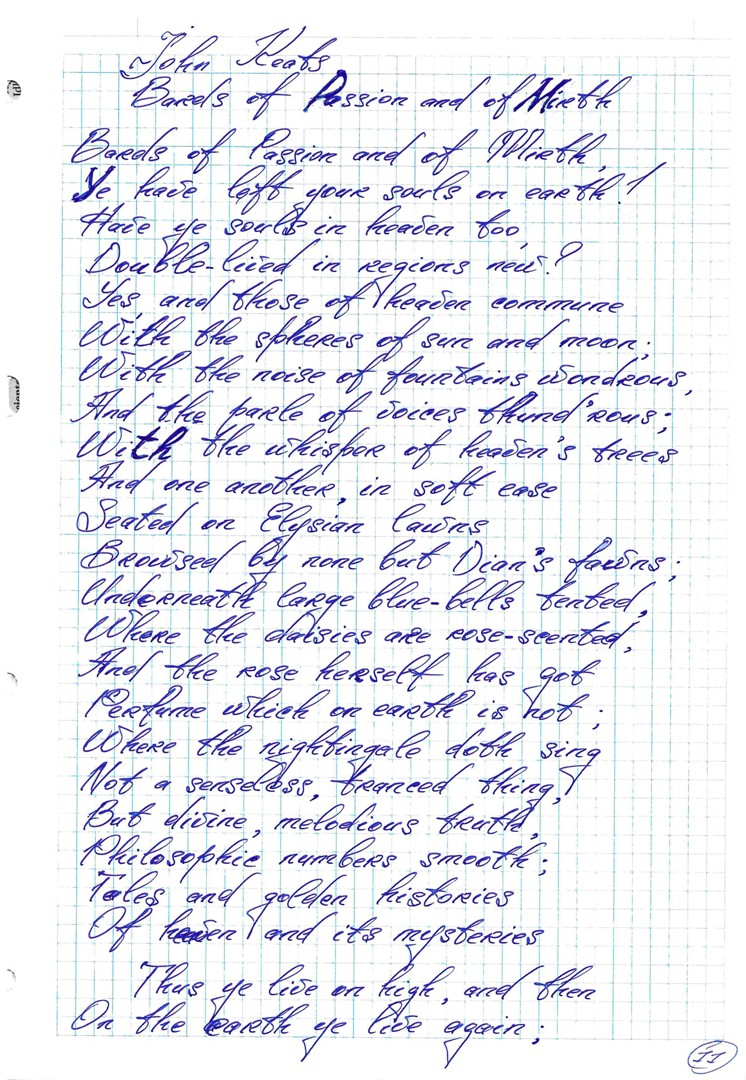 John Keats
Bards of Passion and of Mirth
Bards of Passion and of Mirth,
Ye have left your souls on earth!
Have ye souls in heaven too,
Double-lived in regions new?
Yes, and those of heaven commune
With the spheres of sun and moon;
With the noise of fountains wondrous,
And the parle of voices thund'rous;
With the whisper of heaven's trees
And one another, in soft ease
Seated on Elysian lawns
Browsed by none but Dian's fawns;
Underneath large blue-bells tented,
Where the daisies are rose-scented,
And the rose herself has got
Perfume which on earth is not;
Where the nightingale doth sing
Not a senseless, tranced thing,
But divine, melodious truth,
Philosophic numbers smooth;
Tales and golden histories
Of heaven and its mysteries
Thus ye live on high, and then
On the earth ye live again;
11